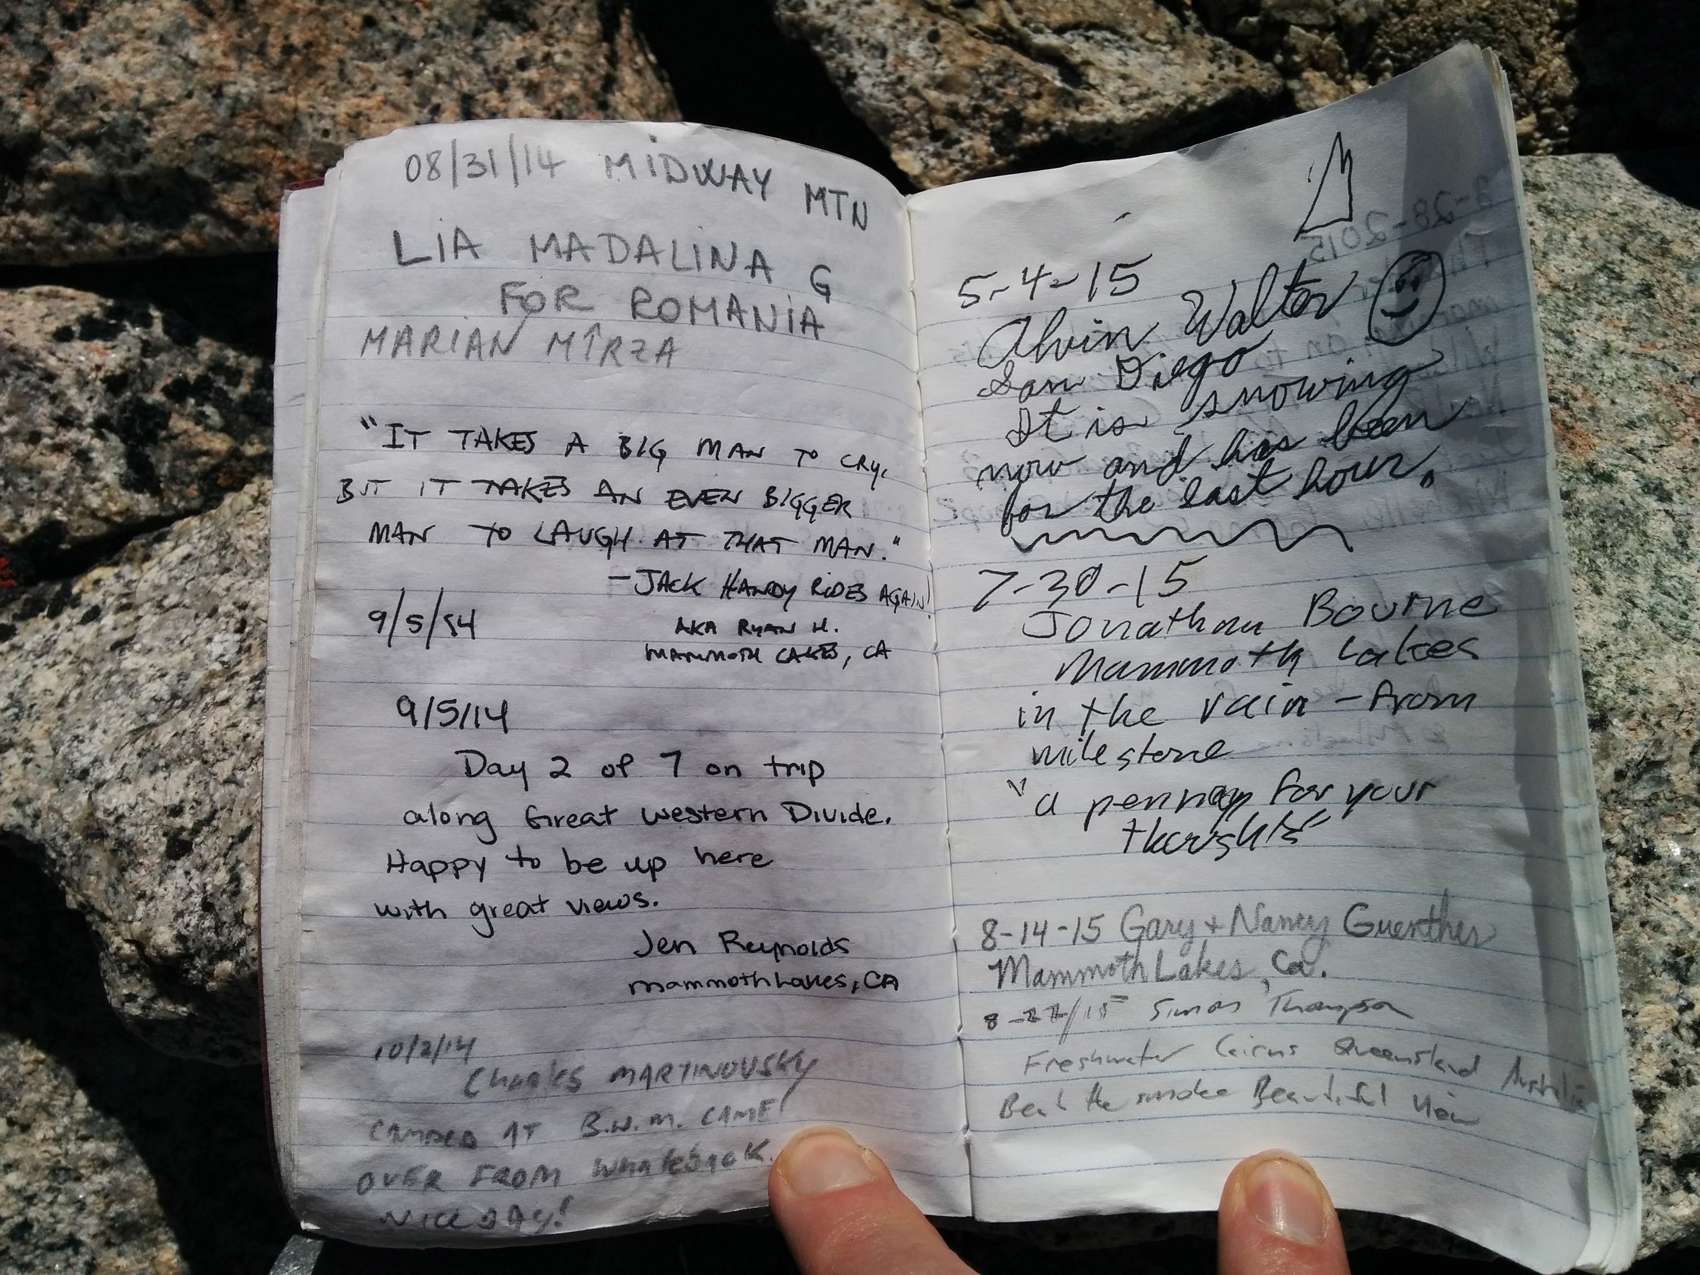 08/31/14 MIDWAY MTN
LIA MADALINA G
FOR ROMANIA
MARIAN MÎRZA
"IT TAKES A BIG MAN TO CRY,
BUT IT TAKES AN EVEN BIGGER
MAN TO LAUGH AT THAT MAN."
- JACK HANDY RIDES AGAIN!
9/5/14 AKA RYAN H.
MAMMOTH LAKES, CA
9/5/14
Day 2 of 7 on trip
along Great Western Divide.
Happy to be up here
with great views.
Jen Reynolds
mammoth Lakes, CA
10/2/14
CHARLES MARTINOVSKY
CAMPED AT B.W.M. CAME
OVER FROM WHALEBACK.
NICE DAY!
5-4-15
Alvin Walter
San Diego
It is snowing
now and has been
for the last hour.
7-30-15
Jonathan Bourne
Mammoth Lakes
in the rain - from
milestone
"a penny for your
thoughts"
8-14-15 Gary + Nancy Guenther
Mammoth Lakes, Ca.
8-27/15 Simon Thompson
Freshwater Cairns Queensland Australia
Beat the smoke Beautiful view